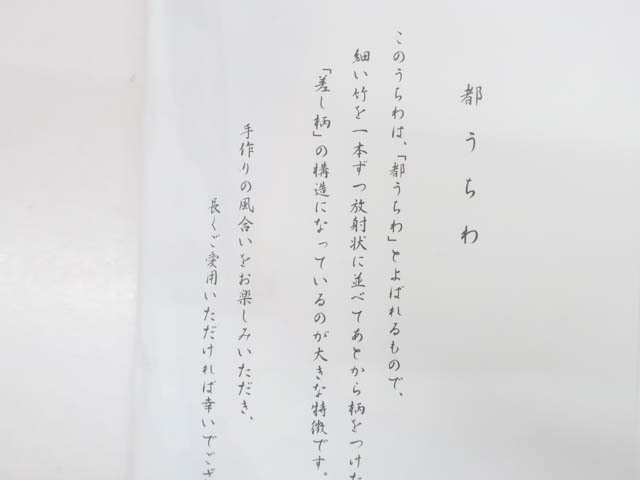 都うちわ
このうちわは、「都うちわ」とよばれるもので、
細い竹を一本ずつ放射状に並べてあとから柄をつけた
「差し柄」の構造になっているのが大きな特徴です。
手作りの風合いをお楽しみいただき、
長くご愛用いただければ幸いでござ